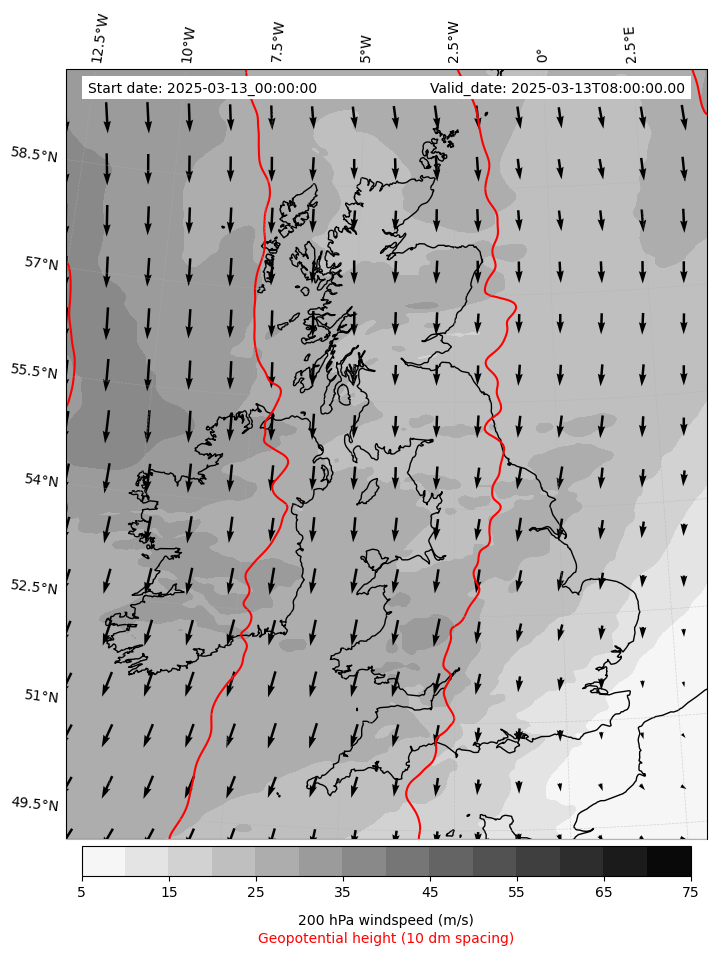 12.5°W 10°W 7.5°W 5°W 2.5°W 0° 2.5°E
Start date: 2025-03-13_00:00:00 Valid_date: 2025-03-13T08:00:00.00
58.5°N
57°N
55.5°N
54°N
52.5°N
51°N
49.5°N
5 15 25 35 45 55 65 75
200 hPa windspeed (m/s)
Geopotential height (10 dm spacing)